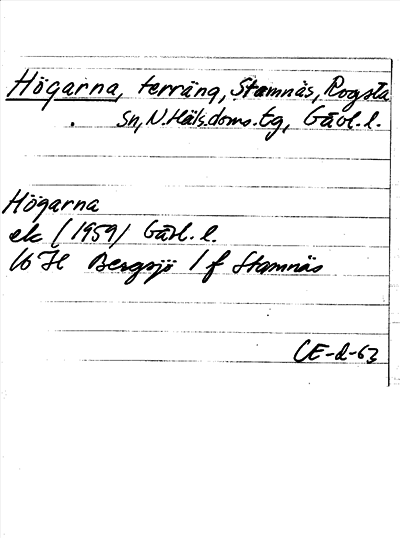 Högarna, terräng, Stamnäs, Rogsta
sn, N. Häls. doms. tg, Gävl. l.
Högarna
ek (1959) Gävl. l.
16 H Bergsjö 1 f Stamnäs
CE-d-63